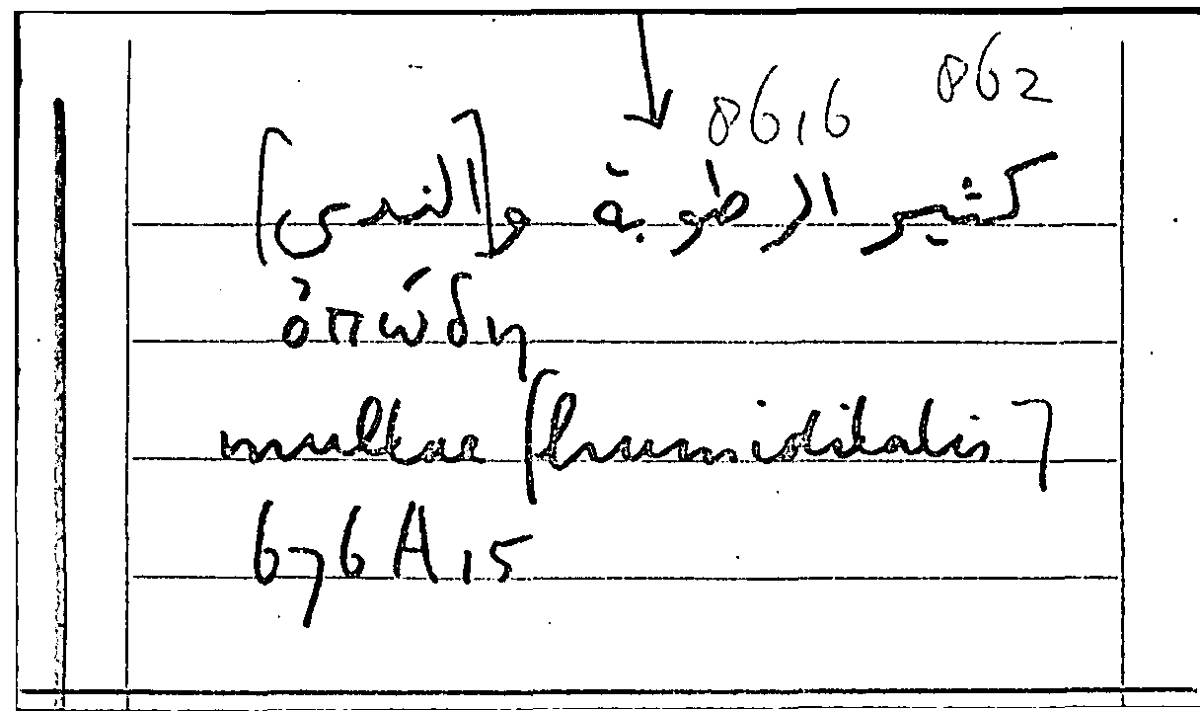 862
8616
كثير الرطوبة و[الندى]
ὀπώδη
multae [humiditatis]
676 A 15